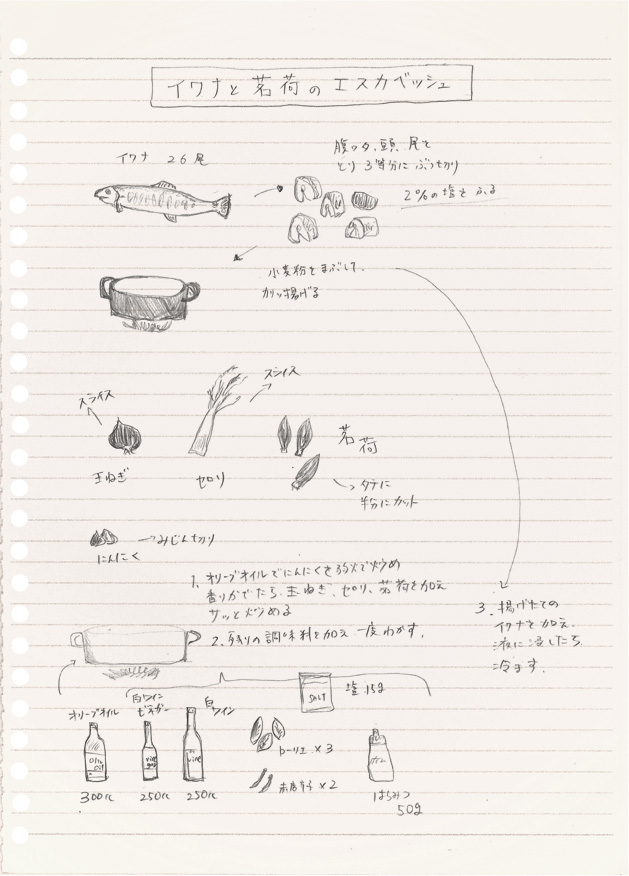 イワナと茗荷のエスカベッシュ
イワナ 26尾
腹ワタ、頭、尾を
とり 3等分に ぶつ切り
2%の塩をふる
小麦粉をまぶして、
カリッ揚げる
スライス
スライス
玉ねぎ
セロリ
茗荷
タテに
半分にカット
みじん切り
にんにく
1. オリーブオイルでにんにくを弱火で炒め
香りがでたら、玉ねぎ、セロリ、茗荷を加え
サッと炒める
2. 残りの調味料を加え一度わかす。
3. 揚げたての
イワナを加え、
液に浸したら
冷ます。
SALT
塩 15g
オリーブオイル
白ワイン
ビネガー
白
ワイン
300cc
250cc
250cc
ローリエ ×3
赤唐辛子 ×2
はちみつ
50g